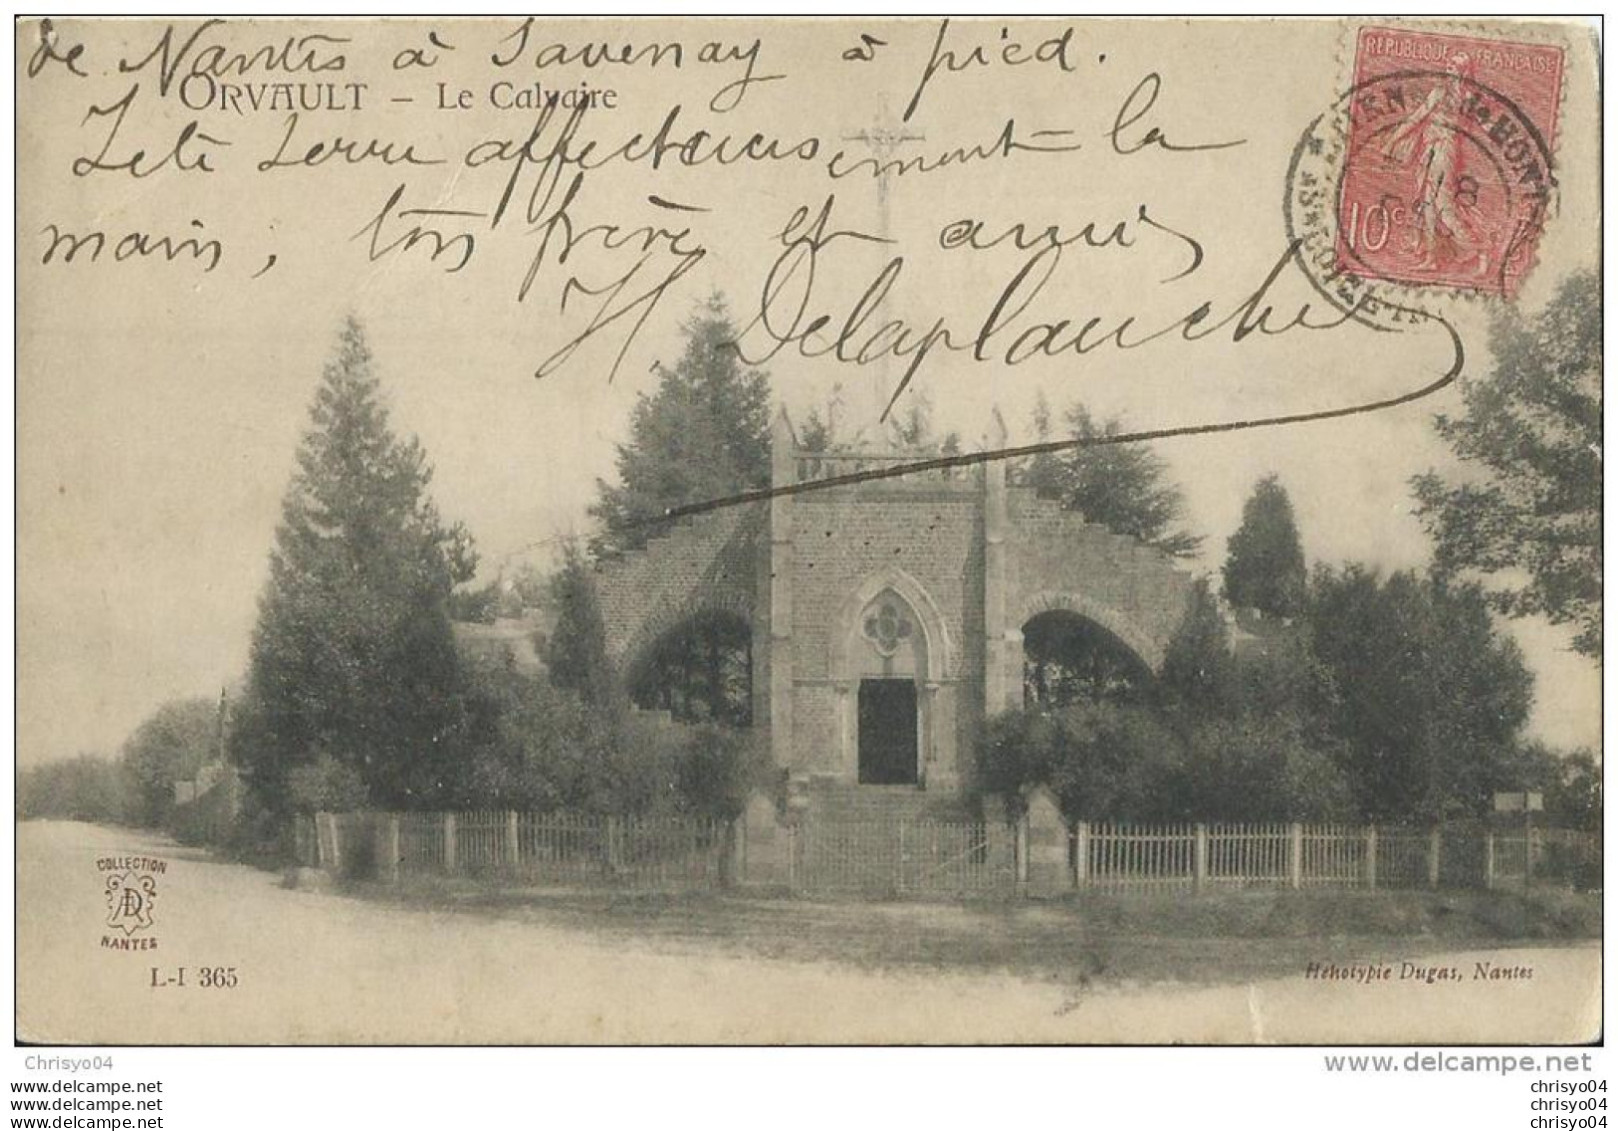 de Nantes à Savenay à pied.
ORVAULT – Le Calvaire
Je te serre affectueusement la
main, ton frère et ami
H. Delaplanche
REPUBLIQUE FRANÇAISE
10 c
COLLECTION
AD
NANTES
L-I 365
Héliotypie Dugas, Nantes
Chrisyo04
www.delcampe.net
www.delcampe.net
www.delcampe.net
www.delcampe.net
chrisyo04
chrisyo04
chrisyo04